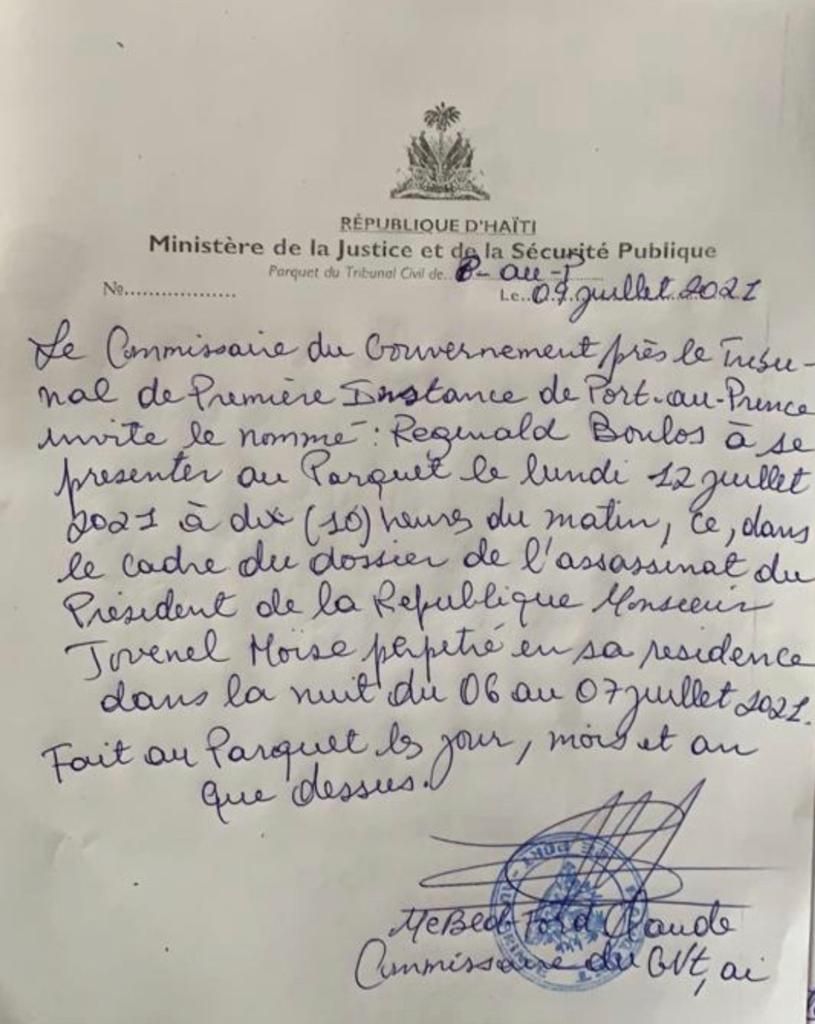 RÉPUBLIQUE D'HAÏTI
Ministère de la Justice et de la Sécurité Publique
Parquet du Tribunal Civil de. P-au-P
No..................
Le..09 juillet 2021
Le Commissaire du Gouvernement près le Tribu-
nal de Première Instance de Port-au-Prince
invite le nommé : Reginald Boulos à se
présenter au Parquet le lundi 12 juillet
2021 à dix (10) heures du matin, ce, dans
le cadre du dossier de l'assassinat du
Président de la République Monsieur
Jovenel Moïse perpetré en sa residence
dans la nuit du 06 au 07 juillet 2021.
Fait au Parquet les jour, mois et an
que dessus.
Me Bed-Ford Claude
Commissaire du GVt, ai